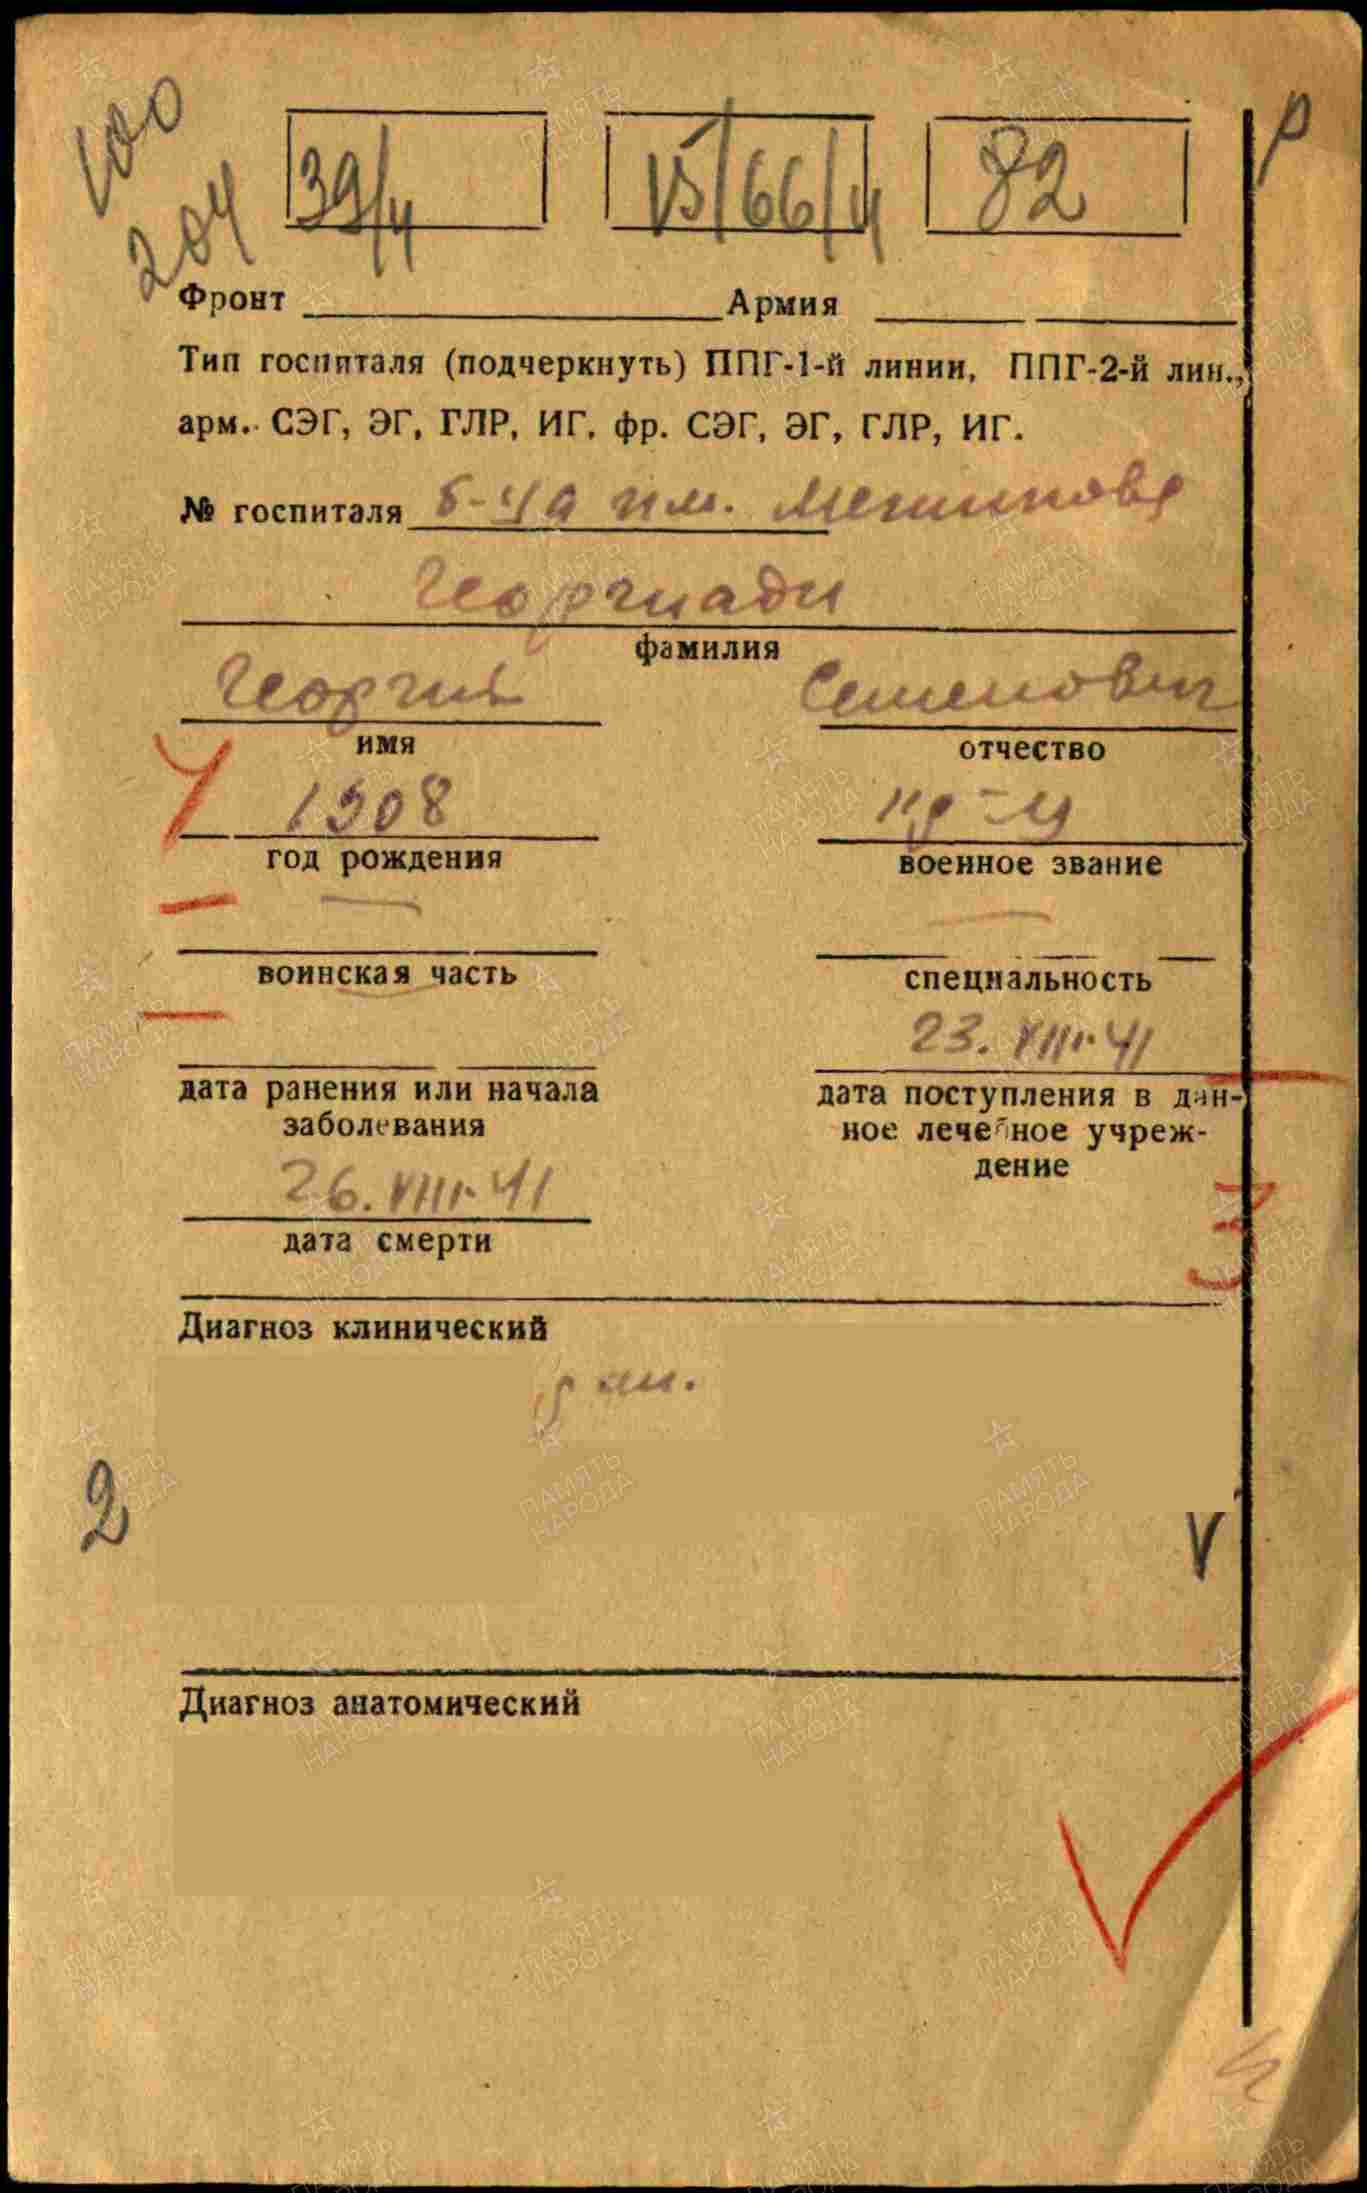 100
204
39/4
V5/66/4
82
р
Фронт Армия
Тип госпиталя (подчеркнуть) ППГ-1-й линии, ППГ-2-й лин.,
арм. СЭГ, ЭГ, ГЛР, ИГ, фр. СЭГ, ЭГ, ГЛР, ИГ.
№ госпиталя б-ца им. Мечникова
Георгиади
фамилия
Георгий Семенович
имя отчество
1908 кр-ц
год рождения военное звание
воинская часть специальность
23.VIII.41
дата ранения или начала дата поступления в дан-
заболевания ное лечебное учреж-
дение
26.VIII.41
дата смерти
3
Диагноз клинический
2
V
Диагноз анатомический
ПАМЯТЬ НАРОДА